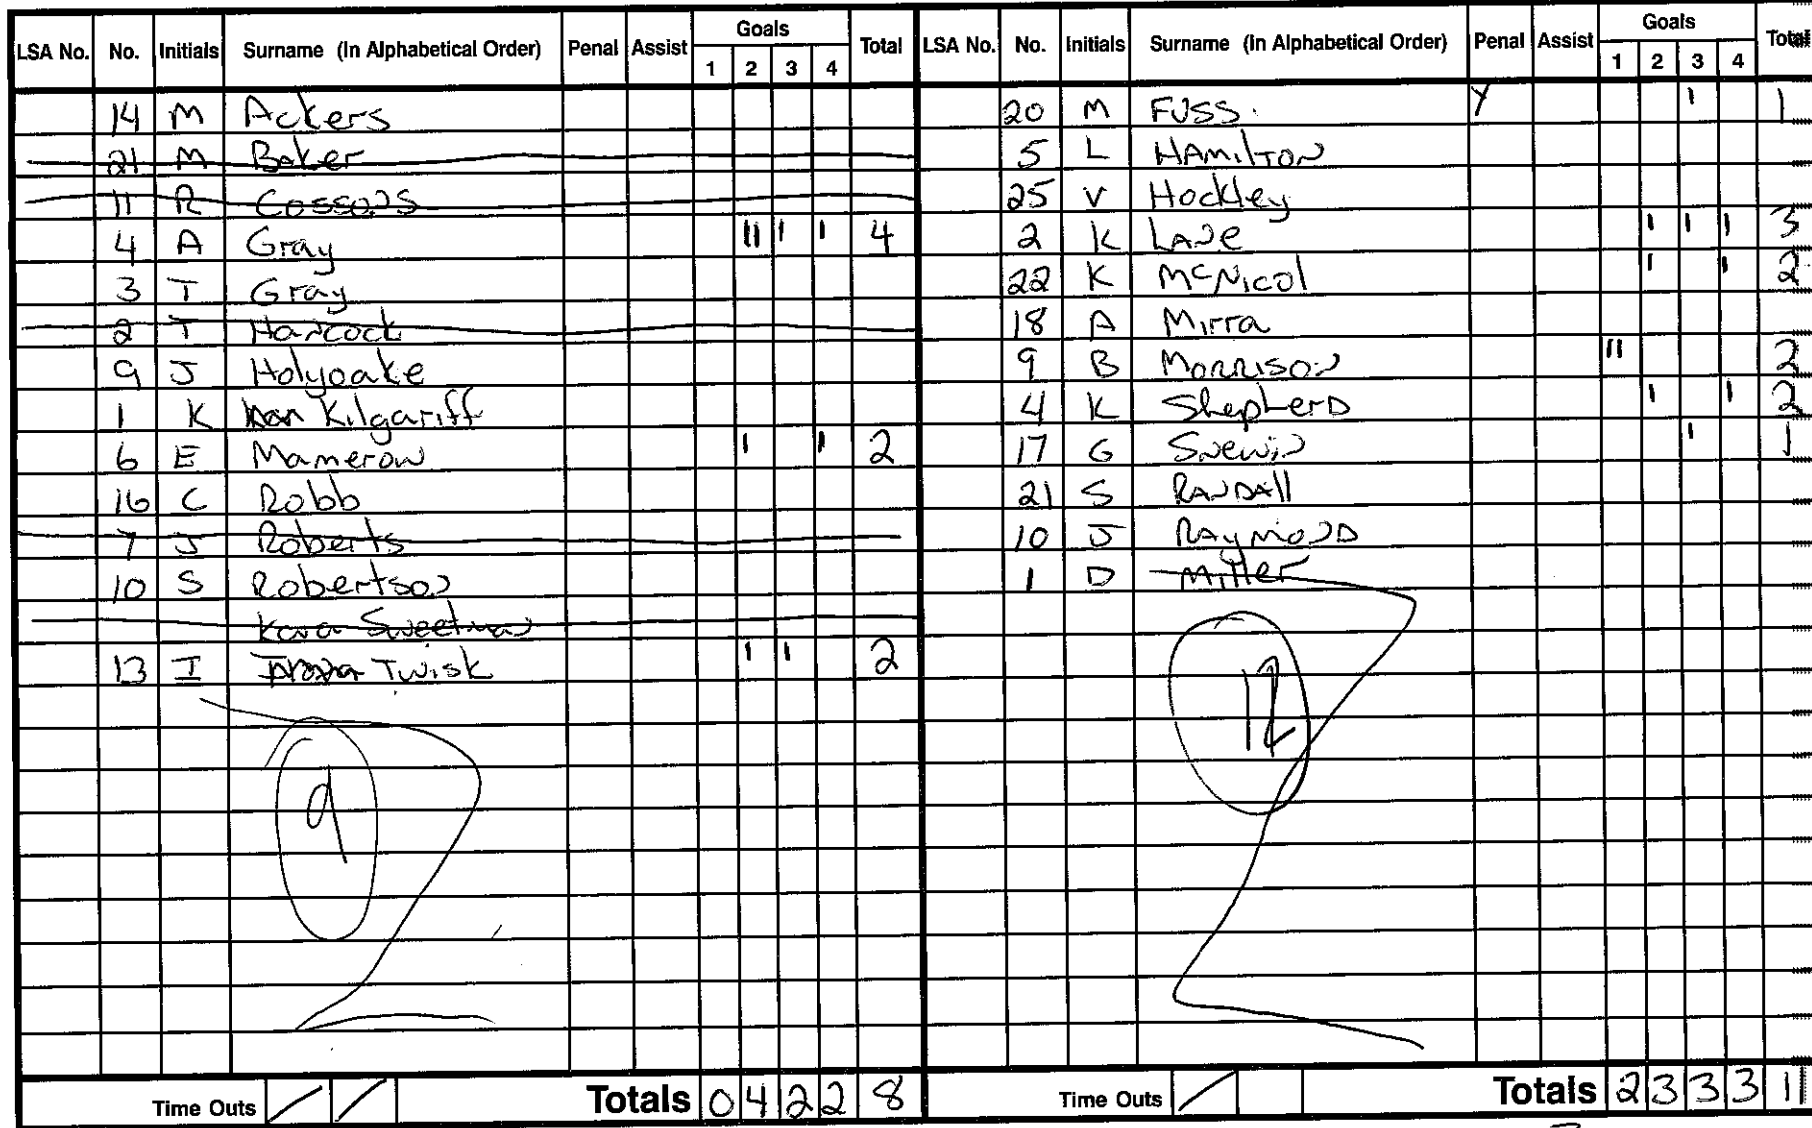 LSA No. No. Initials Surname (In Alphabetical Order) Penal Assist Goals 1 2 3 4 Total
14 M Ackers
21 M Baker
11 R Cossons
4 A Gray 11 1 1 4
3 T Gray
2 T Hancock
9 J Holyoake
1 K Kilgariff
6 E Mamerow 1 1 2
16 C Robb
7 J Roberts
10 S Robertson
Kara Sweetman
13 I Twisk 1 1 2
9
Time Outs / / Totals 0 4 2 2 8
LSA No. No. Initials Surname (In Alphabetical Order) Penal Assist Goals 1 2 3 4 Total
20 M FUSS Y 1 1
5 L HAmilTON
25 V Hockley
2 K LANe 1 1 1 3
22 K McNicol 1 1 2
18 A Mirra
9 B MORRISON 11 2
4 K ShepherD 1 1 2
17 G Snewin 1 1
21 S RANDAll
10 J RAymOND
1 D Miller
12
Time Outs / Totals 2 3 3 3 11